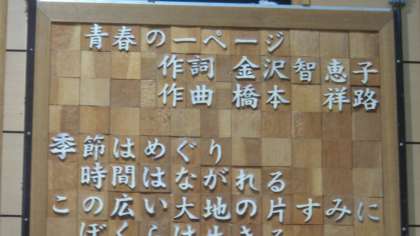 青春の一ページ
作詞 金沢智恵子
作曲 橋本 祥路
季節はめぐり
時間はながれる
この広い大地の片すみに
ぼくらは生きる